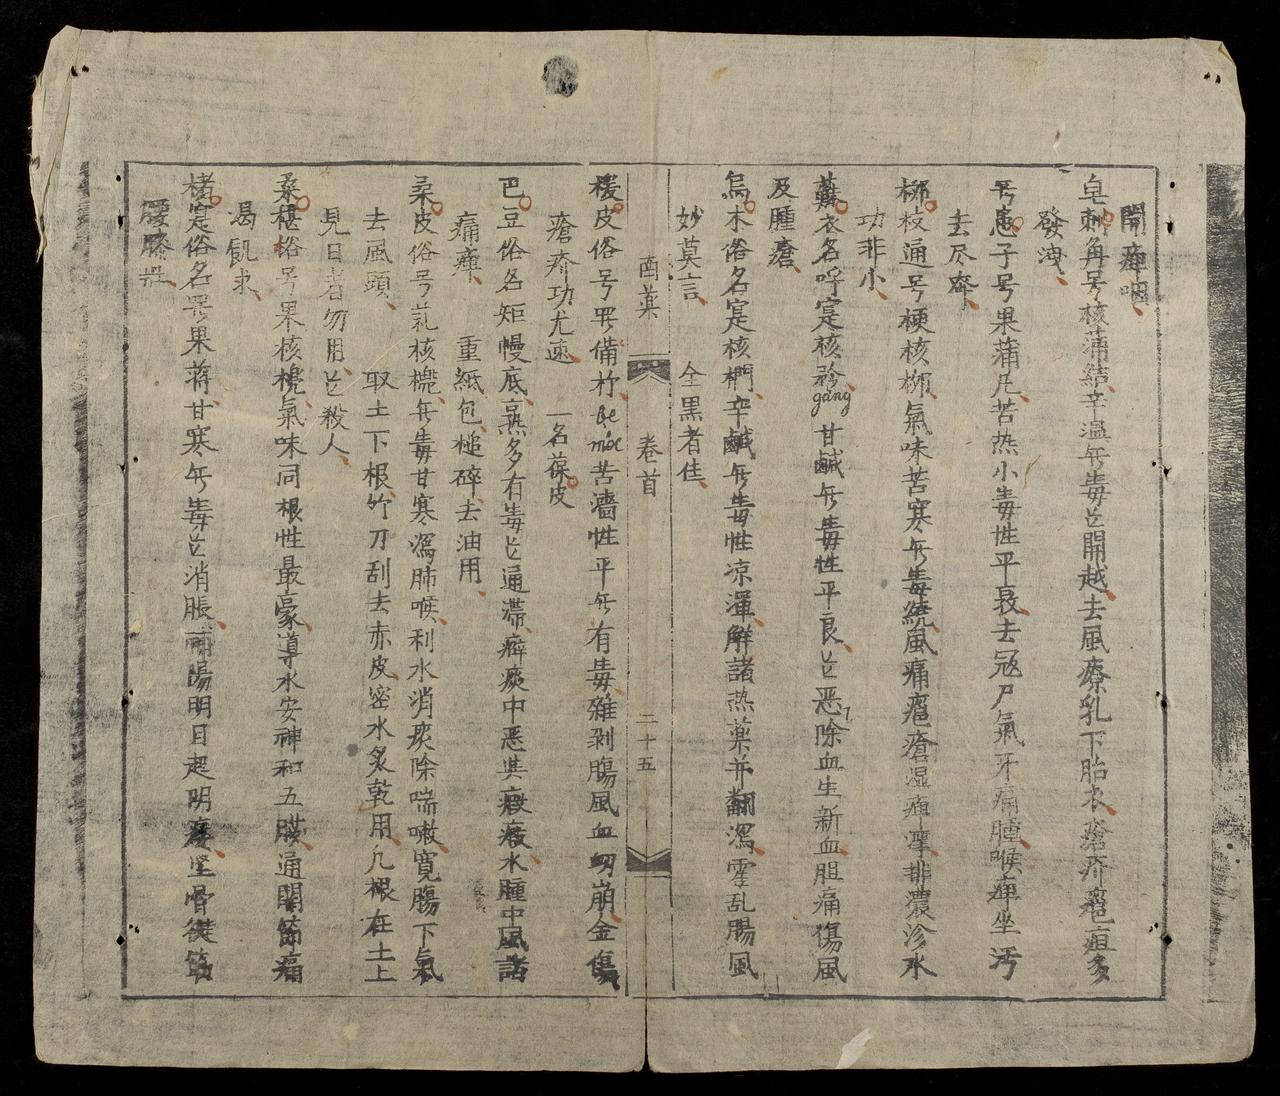 開痺咽
皂刺角号核蒲結辛温无毒岂開越去風療乳下胎衣瘡疥瘪疽多
發洩
号患子号果蒲凡苦热小毒性平哀去冦尸氣牙痛腫喉痺坐汚
去尽疥
柳枝通号梗核柳氣味苦寒无毒繞風痛瘪瘡湿痛摩排濃沴水
功非小
蘇衣名呼寔核 gáng 甘鹹无毒性平良岂恶除血生新血胆痛傷風
及腫瘡
烏木俗名寔核椚辛鹹无毒性凉渾解諸热藥并翻瀉霍乱腸風
妙莫言 全黑者佳
南藥 卷首 二十五
榎皮俗号罘備朾 Be móc 苦濇性平无有毒雜剥腸風血崩金傷
瘡疥功尤速 一名葆皮
巴豆俗名矩慢底熱多有毒岂通滯癖痰中恶水腫中風諸
痛痺 重紙包槌碎去油用
桑皮俗号乳核槐无毒甘寒瀉肺喉利水消痰除喘嗽寛腸下氣
去風頭 取土下根竹刀刮去赤皮密水炙乾用凡根在土上
見日者勿用岂殺人
桑椹俗号果核槐氣味同根性最豪導水安神和五膜通關節痛
渴飢求
楮寔俗名罘果蔣甘寒无毒岂消脹補陽明目起明痿坚骨徤筋
腰膝壮